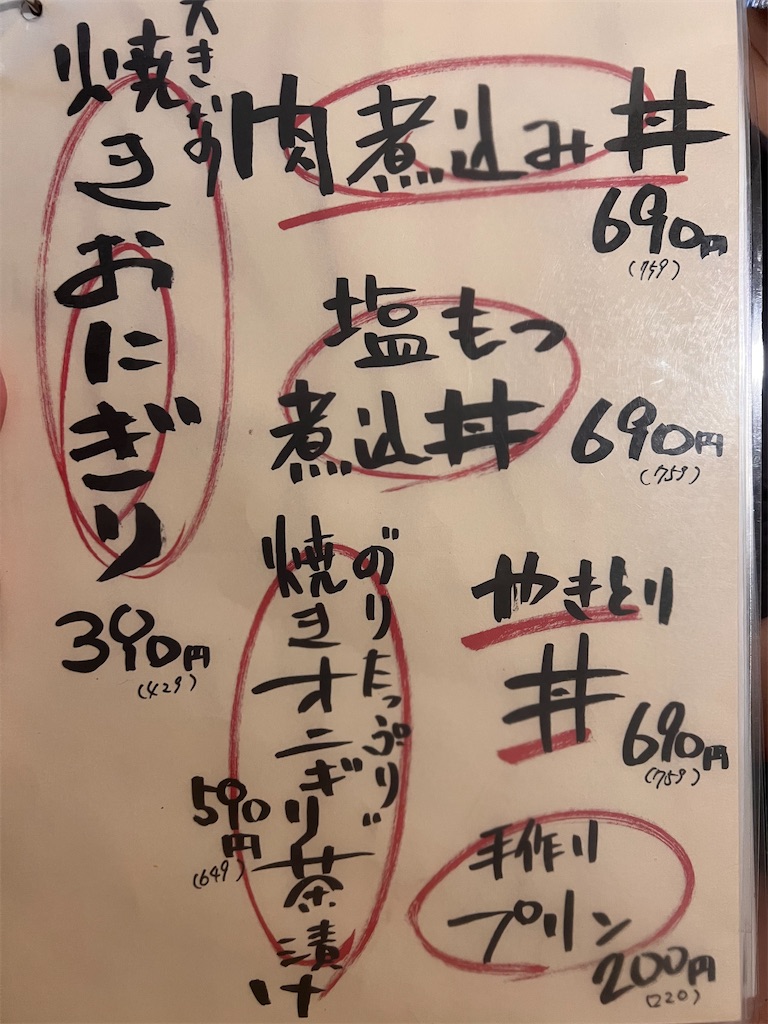 肉煮込み丼
690円
(759)
塩もつ
煮込丼
690円
(759)
やきとり
丼
690円
(759)
手作り
プリン
200円
(220)
のりたっぷり
焼きオニギリ茶漬け
590円
(649)
大きなの
焼きおにぎり
390円
(429)